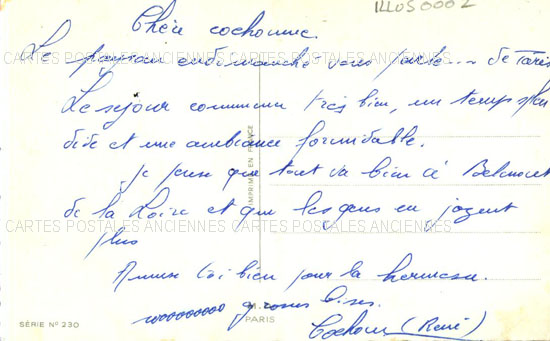 ILLUS0002
Chère cochonne.
Le paysan endimanché vous parle... de Paris
Le séjour commence très bien, un temps splen
dide et une ambiance formidable.
Je pense que tout va bien à Belmont
de la Loire et que les gens en jazent
plus
Amuse toi bien pour la
10000000000 grosses bises.
Cochon (René)
IMPRIMÉ EN FRANCE
SÉRIE N° 230
PARIS
CARTES POSTALES ANCIENNES CARTES POSTALES ANCIENNES
CARTES POSTALES ANCIENNES CARTES POSTALES ANCIENNES